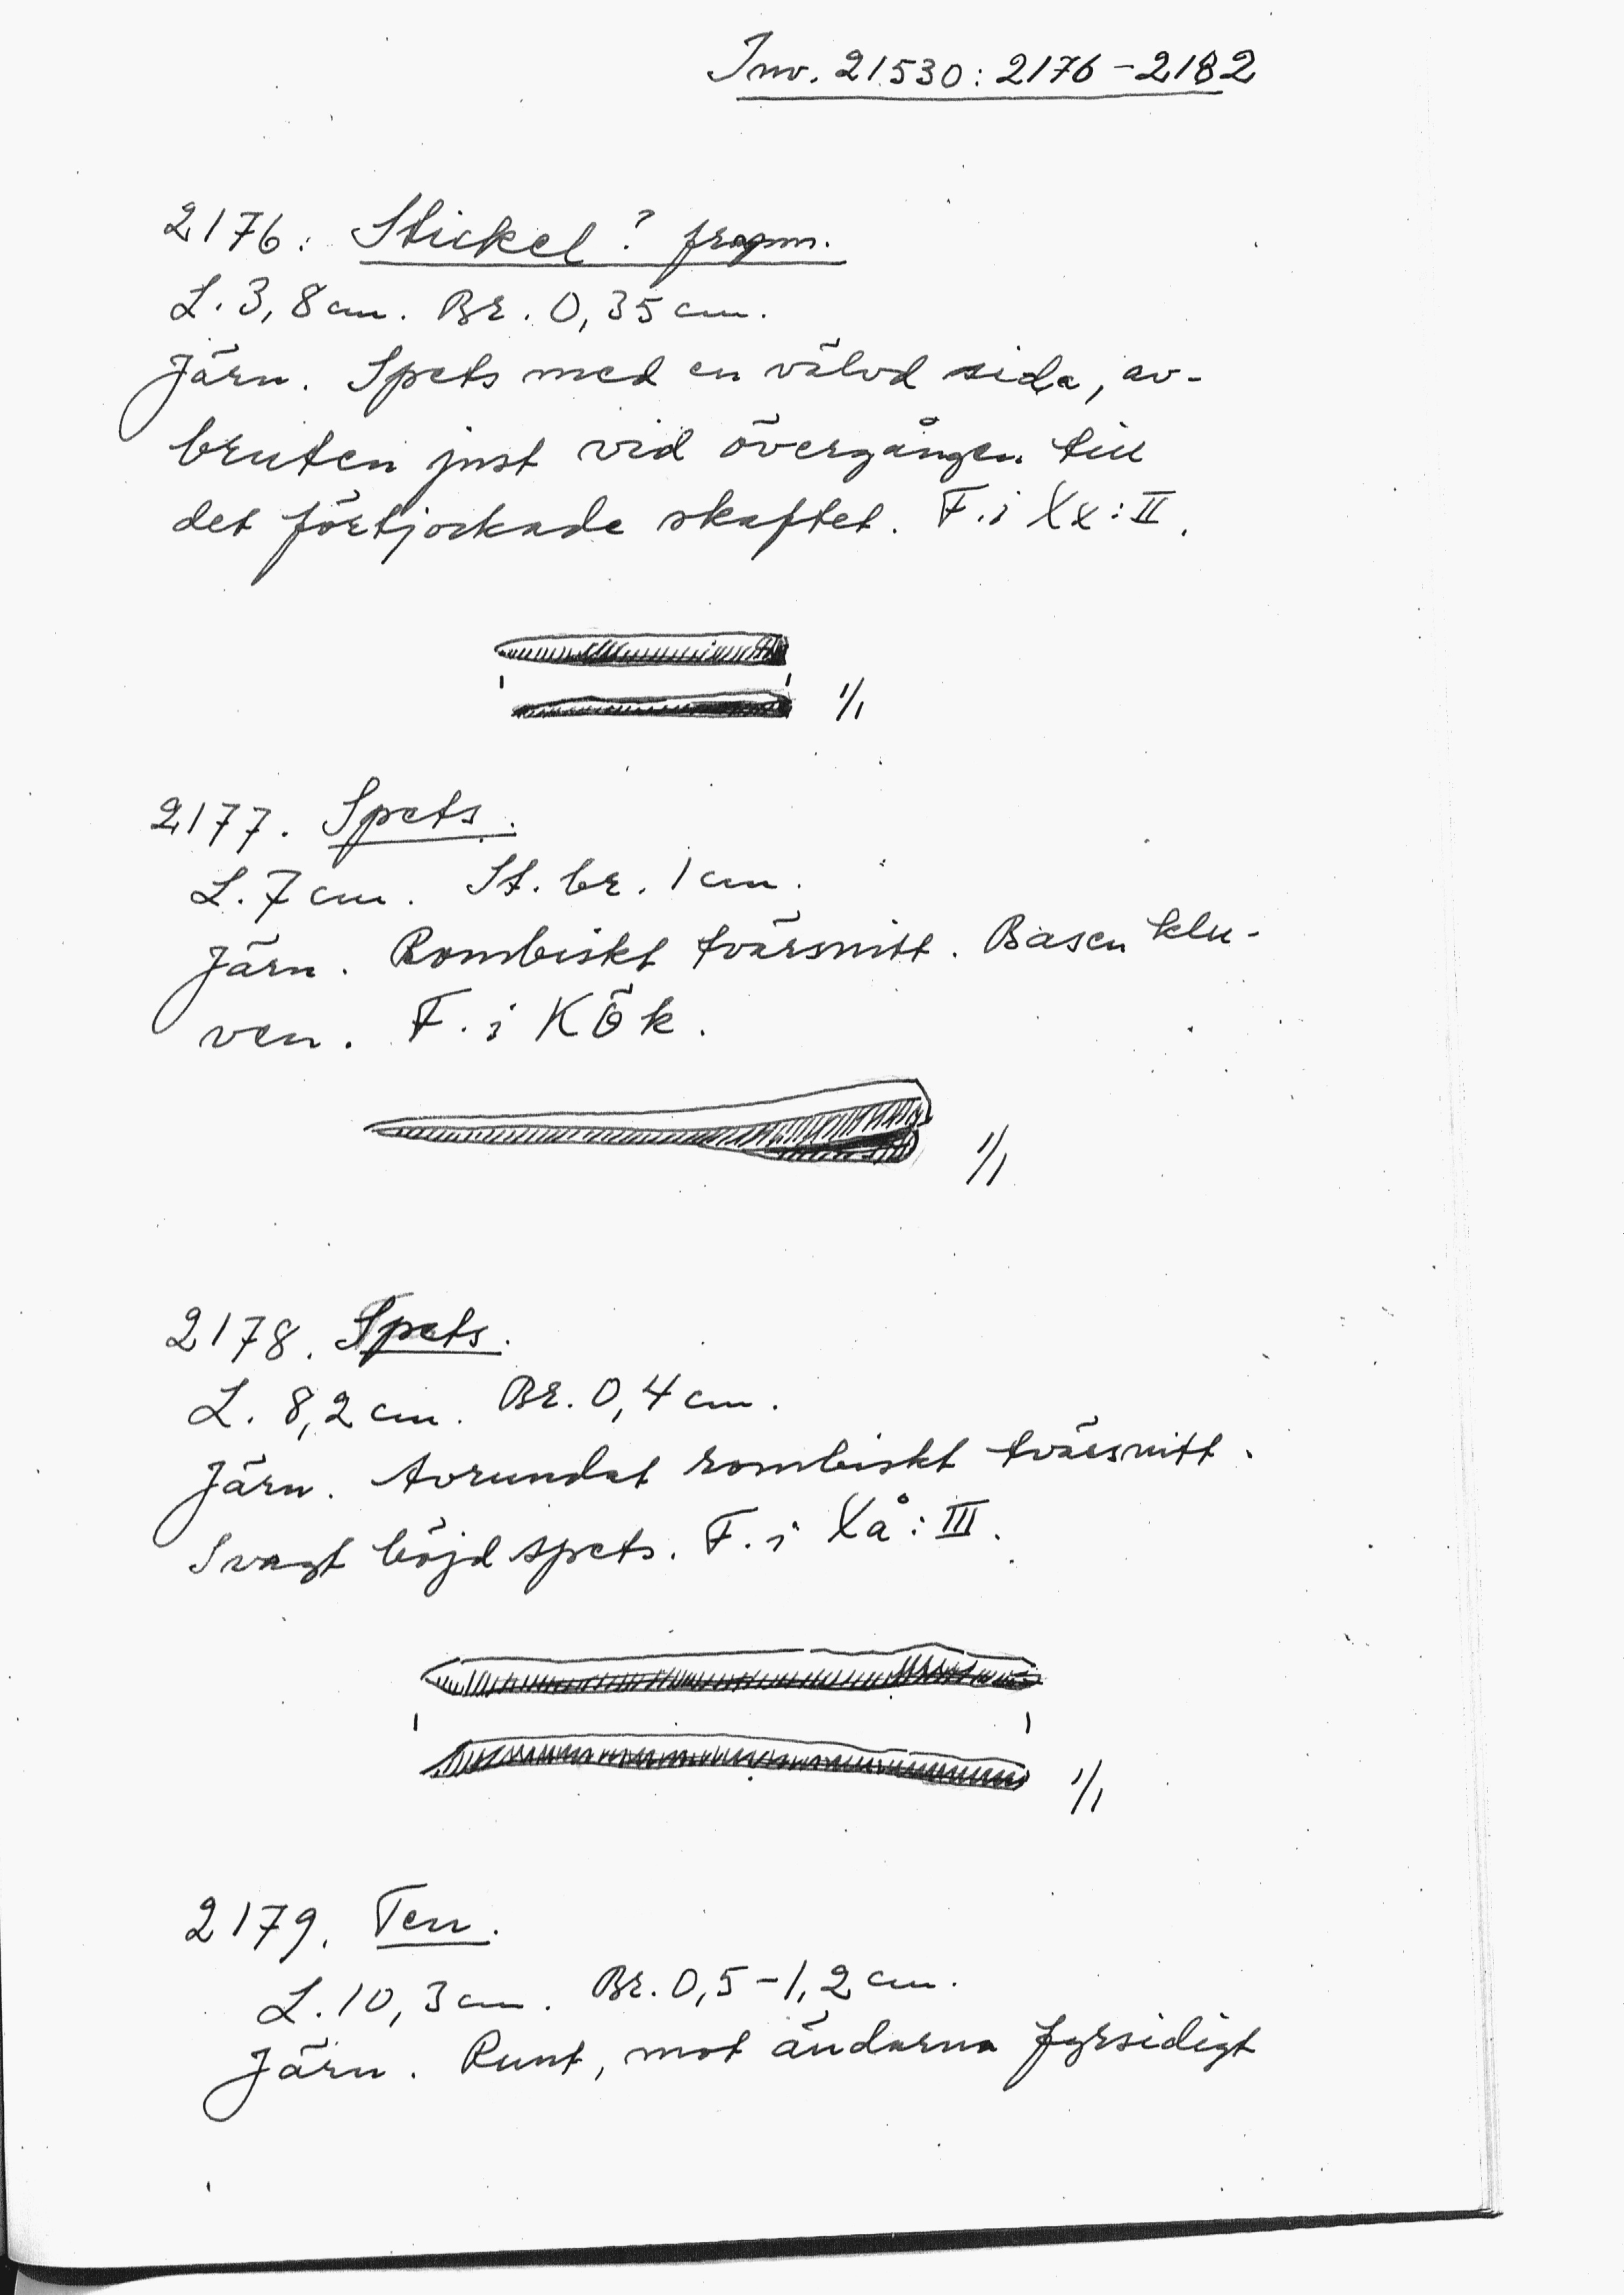 Inv. 21530: 2176-2182
2176: Stickel? fragm.
L. 3,8 cm. Br. 0,35 cm.
Järn. Spets med en välvd sida, av-
bruten just vid övergången till
det förtjockade skaftet. F. i Xx: II.
1/1
2177. Spets.
L. 7 cm. St. br. 1 cm.
Järn. Rombiskt tvärsnitt. Basen klu-
ven. F. i KÖk.
1/1
2178. Spets.
L. 8,2 cm. Br. 0,4 cm.
Järn. Avrundat rombiskt tvärsnitt.
Svagt böjd spets. F. i Xå: III.
1/1
2179. Ten.
L. 10,3 cm. Br. 0,5-1,2 cm.
Järn. Runt, mot ändarna fyrsidigt